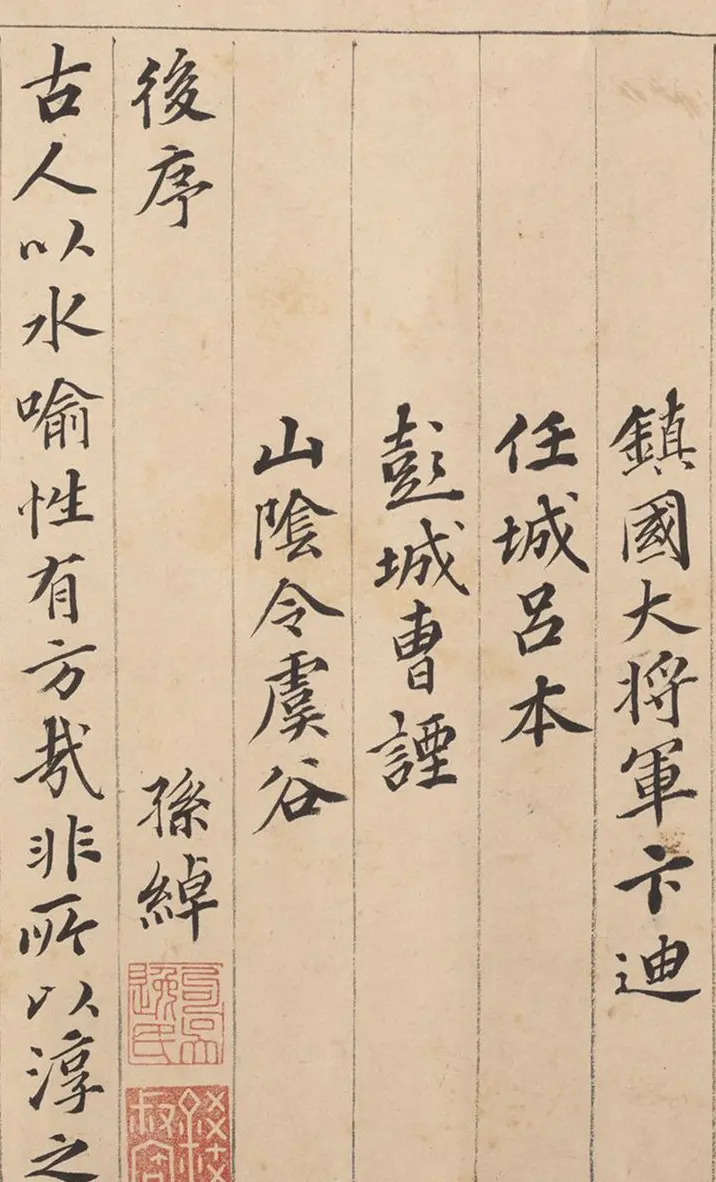 鎮國大将軍卞迪
任城呂本
彭城曺諲
山隂令虞谷
後序 孫綽
古人以水喻性有方㢤非所以淳之